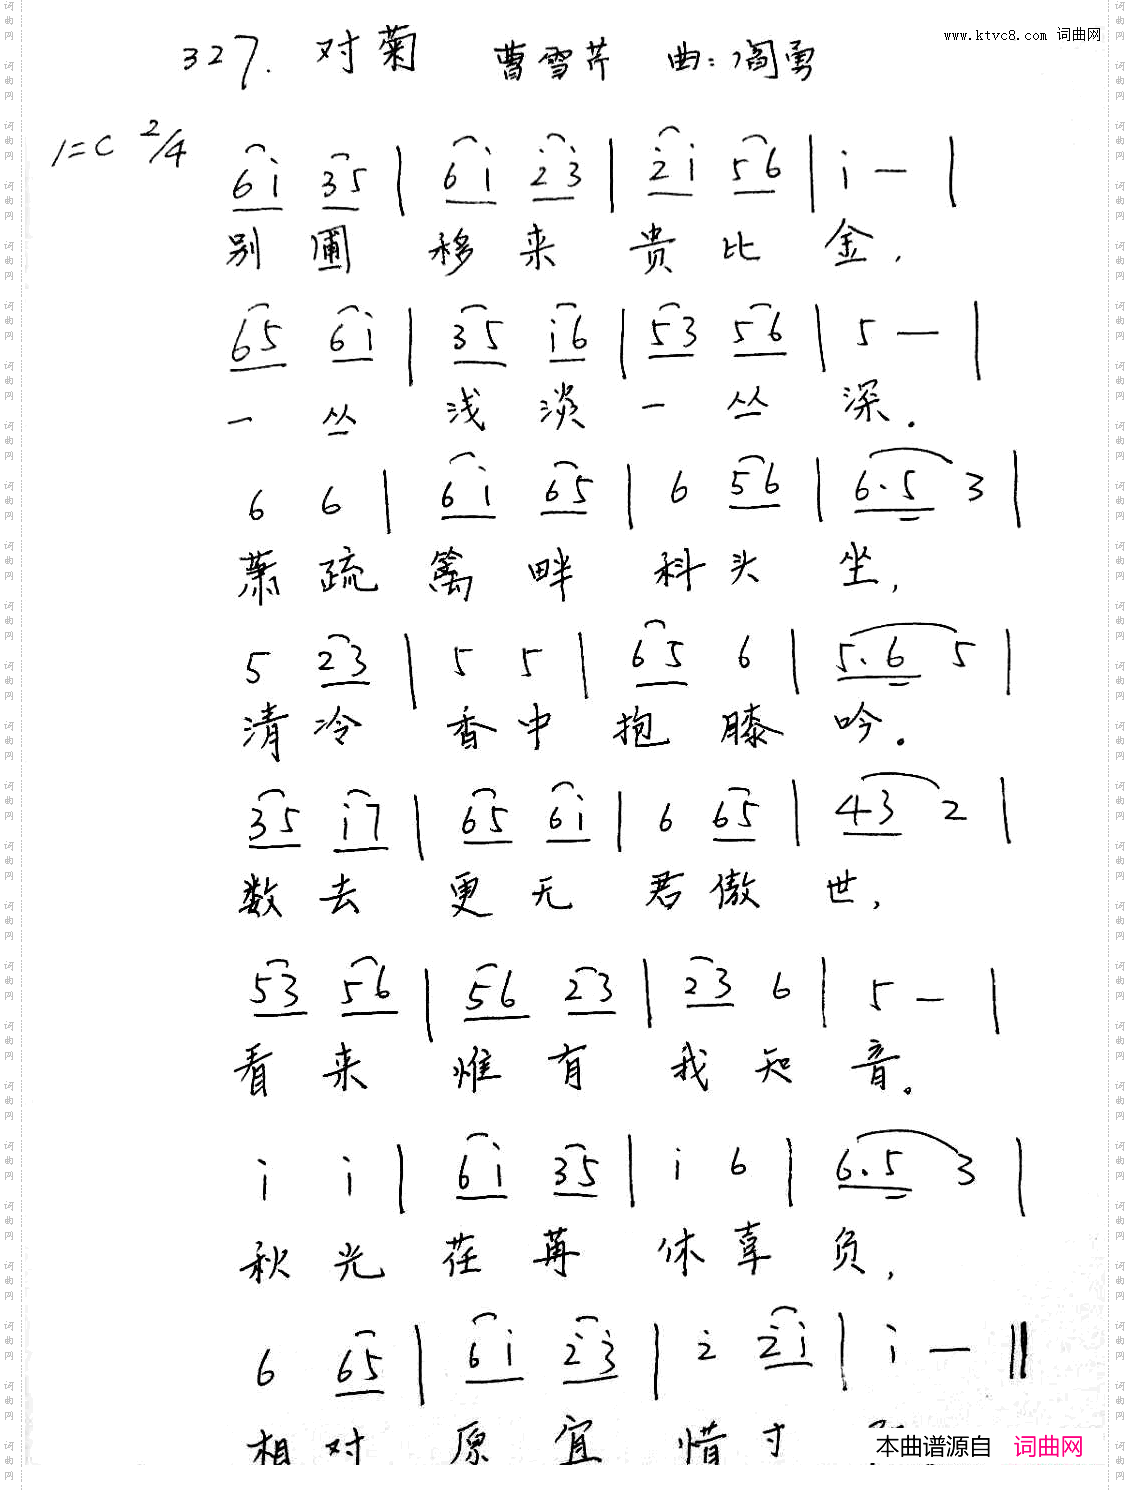 www.ktvc8.com 词曲网
327. 对菊 曹雪芹 曲:阎勇
1=C 2/4
6i 35 | 6i 2̇3̇ | 2̇i 56 | i — |
别圃移来贵比金,
65 6i | 35 i6 | 53 56 | 5 — |
一丛浅淡一丛深.
6 6 | 6i 65 | 6 56 | 6.5 3 |
萧疏篱畔科头坐,
5 23 | 5 5 | 65 6 | 5.6 5 |
清冷香中抱膝吟.
35 i7 | 65 6i | 6 65 | 43 2 |
数去更无君傲世,
53 56 | 56 23 | 23 6 | 5 — |
看来惟有我知音。
i i | 6i 35 | i 6 | 6.5 3 |
秋光荏苒休辜负,
6 65 | 6i 2̇3̇ | 2̇ 2̇i | i — ‖
相对原宜惜寸
本曲谱源自 词曲网